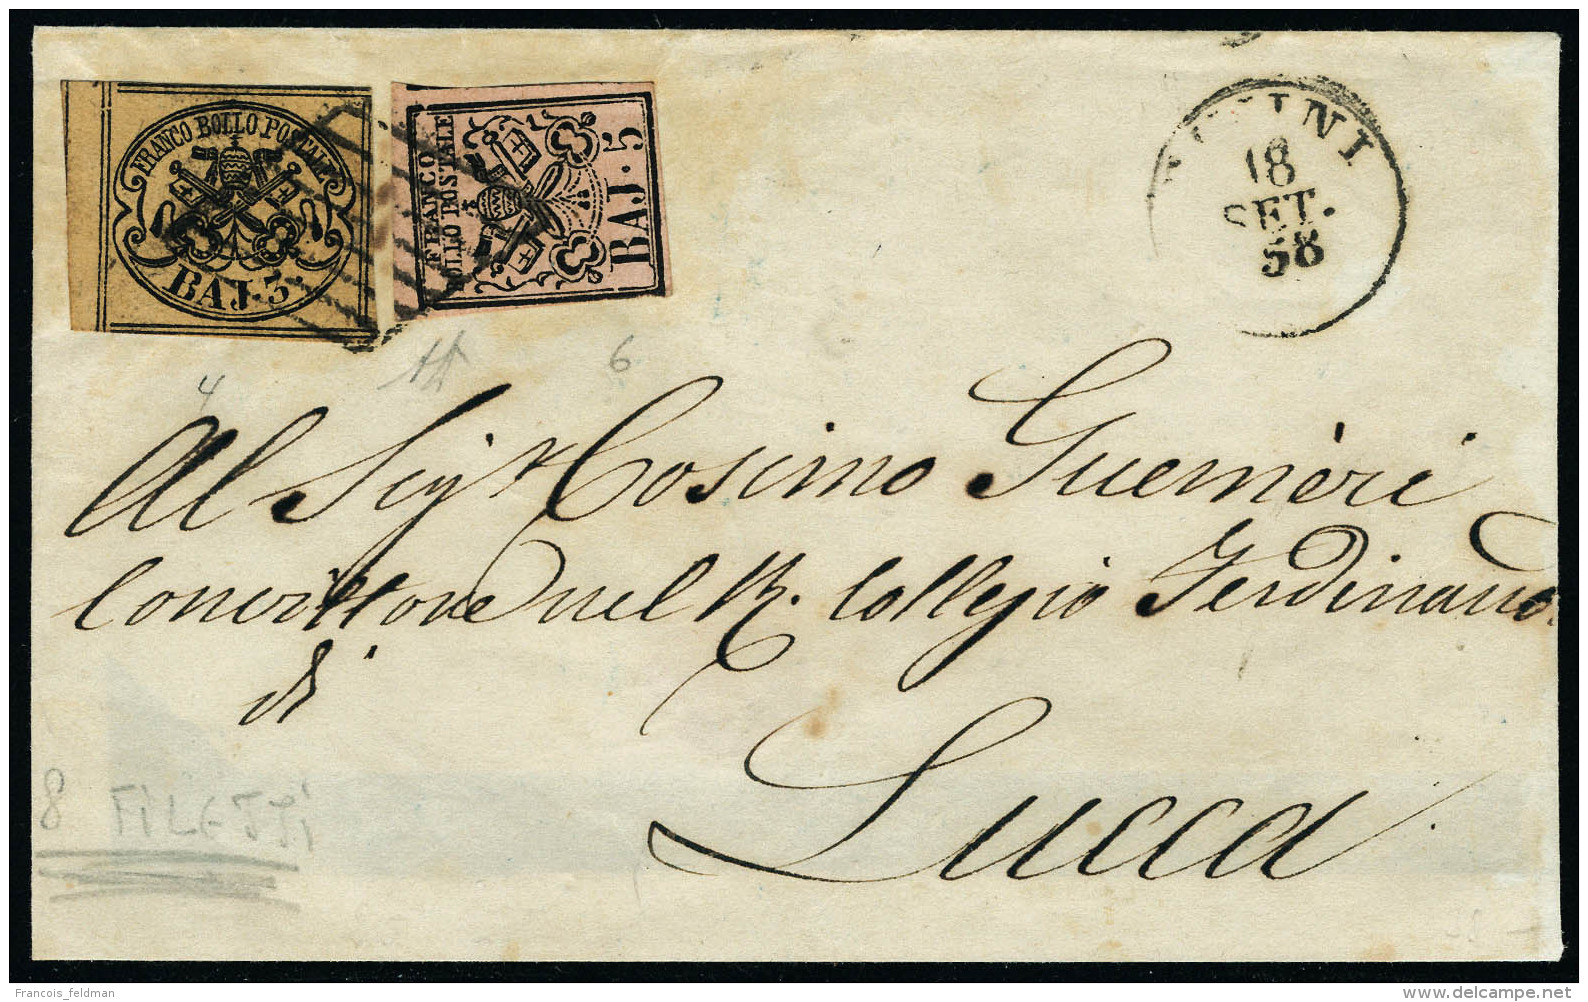 FRANCO BOLLO POSTALE
BAJ. 3.
FRANCO
BOLLO POSTALE
BAJ. 5
18
SET.
58
4
6
Al Sigr Cosimo Guernieri
nel R. Collegio Ferdinando
di
Lucca
8 FILETTI
Francois_feldman